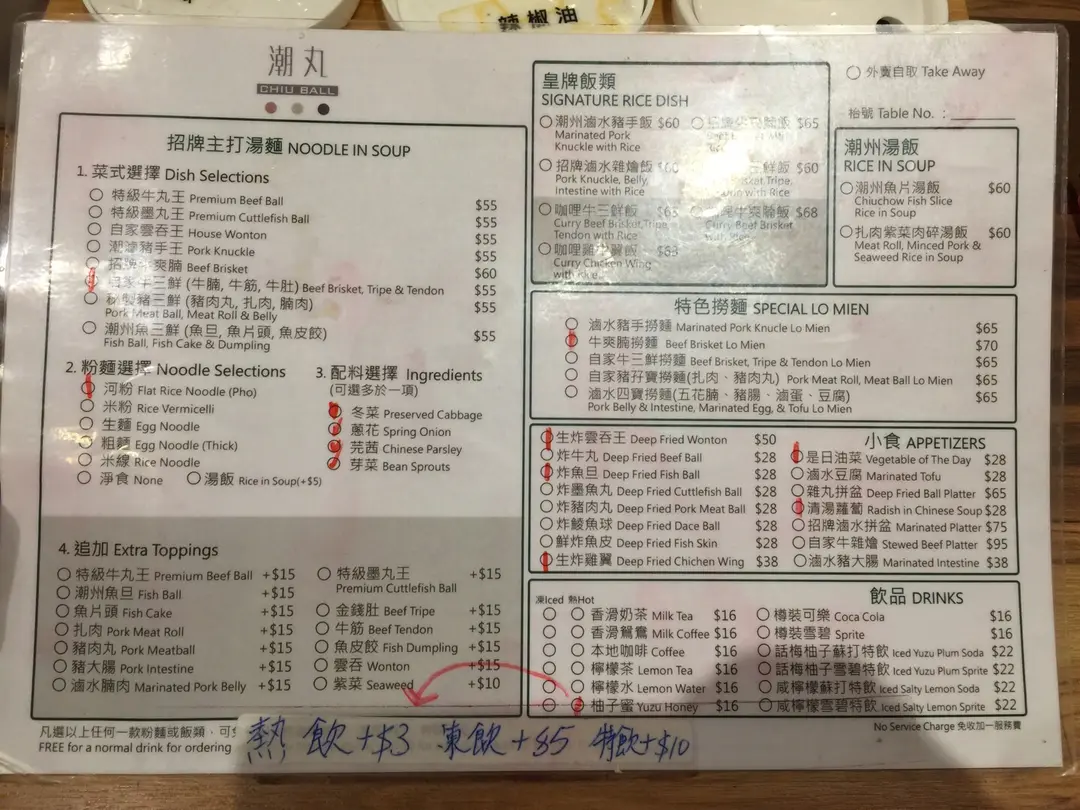 辣椒油
潮丸
CHIU BALL
招牌主打湯麵 NOODLE IN SOUP
1. 菜式選擇 Dish Selections
特級牛丸王 Premium Beef Ball $55
特級墨丸王 Premium Cuttlefish Ball $55
自家雲吞王 House Wonton $55
潮滷豬手王 Pork Knuckle $55
招牌牛爽腩 Beef Brisket $60
自家牛三鮮 (牛腩, 牛筋, 牛肚) Beef Brisket, Tripe & Tendon $55
秘製豬三鮮 (豬肉丸, 扎肉, 腩肉) $55
Pork Meat Ball, Meat Roll & Belly
潮州魚三鮮 (魚旦, 魚片頭, 魚皮餃) $55
Fish Ball, Fish Cake & Dumpling
2. 粉麵選擇 Noodle Selections
河粉 Flat Rice Noodle (Pho)
米粉 Rice Vermicelli
生麵 Egg Noodle
粗麵 Egg Noodle (Thick)
米線 Rice Noodle
淨食 None 湯飯 Rice in Soup(+$5)
3. 配料選擇 Ingredients
(可選多於一項)
冬菜 Preserved Cabbage
蔥花 Spring Onion
芫茜 Chinese Parsley
芽菜 Bean Sprouts
4. 追加 Extra Toppings
特級牛丸王 Premium Beef Ball +$15
潮州魚旦 Fish Ball +$15
魚片頭 Fish Cake +$15
扎肉 Pork Meat Roll +$15
豬肉丸 Pork Meatball +$15
豬大腸 Pork Intestine +$15
滷水腩肉 Marinated Pork Belly +$15
特級墨丸王 +$15
Premium Cuttlefish Ball
金錢肚 Beef Tripe +$15
牛筋 Beef Tendon +$15
魚皮餃 Fish Dumpling +$15
雲吞 Wonton +$15
紫菜 Seaweed +$10
凡選以上任何一款粉麵或飯類,
FREE for a normal drink for ordering
熱飲+$3 凍飲+$5 特飲+$10
皇牌飯類
SIGNATURE RICE DISH
潮州滷水豬手飯 $60
Marinated Pork
Knuckle with Rice
$65
招牌滷水雜燴飯 $60
Pork Knuckle, Belly,
Intestine with Rice
三鮮飯 $60
Tripe,
with Rice
咖哩牛三鮮飯 $65
Curry Beef Brisket, Tripe,
Tendon with Rice
牛爽腩飯 $68
Curry Beef Brisket
with Rice
咖哩雞中翼飯
Curry Chicken Wing
with rice
外賣自取 Take Away
枱號 Table No. :
潮州湯飯
RICE IN SOUP
潮州魚片湯飯 $60
Chiuchow Fish Slice
Rice in Soup
扎肉紫菜肉碎湯飯 $60
Meat Roll, Minced Pork &
Seaweed Rice in Soup
特色撈麵 SPECIAL LO MIEN
滷水豬手撈麵 Marinated Pork Knucle Lo Mien $65
牛爽腩撈麵 Beef Brisket Lo Mien $70
自家牛三鮮撈麵 Beef Brisket, Tripe & Tendon Lo Mien $65
自家豬孖寶撈麵(扎肉、豬肉丸) Pork Meat Roll, Meat Ball Lo Mien $65
滷水四寶撈麵(五花腩、豬腸、滷蛋、豆腐) $65
Pork Belly & Intestine, Marinated Egg, & Tofu Lo Mien
小食 APPETIZERS
生炸雲吞王 Deep Fried Wonton $50
炸牛丸 Deep Fried Beef Ball $28
炸魚旦 Deep Fried Fish Ball $28
炸墨魚丸 Deep Fried Cuttlefish Ball $28
炸豬肉丸 Deep Fried Pork Meat Ball $28
炸鯪魚球 Deep Fried Dace Ball $28
鮮炸魚皮 Deep Fried Fish Skin $28
生炸雞翼 Deep Fried Chichen Wing $38
是日油菜 Vegetable of The Day $28
滷水豆腐 Marinated Tofu $28
雜丸拼盆 Deep Fried Ball Platter $65
清湯蘿蔔 Radish in Chinese Soup $28
招牌滷水拼盆 Marinated Platter $75
自家牛雜燴 Stewed Beef Platter $95
滷水豬大腸 Marinated Intestine $38
飲品 DRINKS
凍Iced 熱Hot
香滑奶茶 Milk Tea $16
香滑鴛鴦 Milk Coffee $16
本地咖啡 Coffee $16
檸檬茶 Lemon Tea $16
檸檬水 Lemon Water $16
柚子蜜 Yuzu Honey $16
樽裝可樂 Coca Cola $16
樽裝雪碧 Sprite $16
話梅柚子蘇打特飲 Iced Yuzu Plum Soda $22
話梅柚子雪碧特飲 Iced Yuzu Plum Sprite $22
咸檸檬蘇打特飲 Iced Salty Lemon Soda $22
咸檸檬雪碧特飲 Iced Salty Lemon Sprite $22
No Service Charge 免收加一服務費